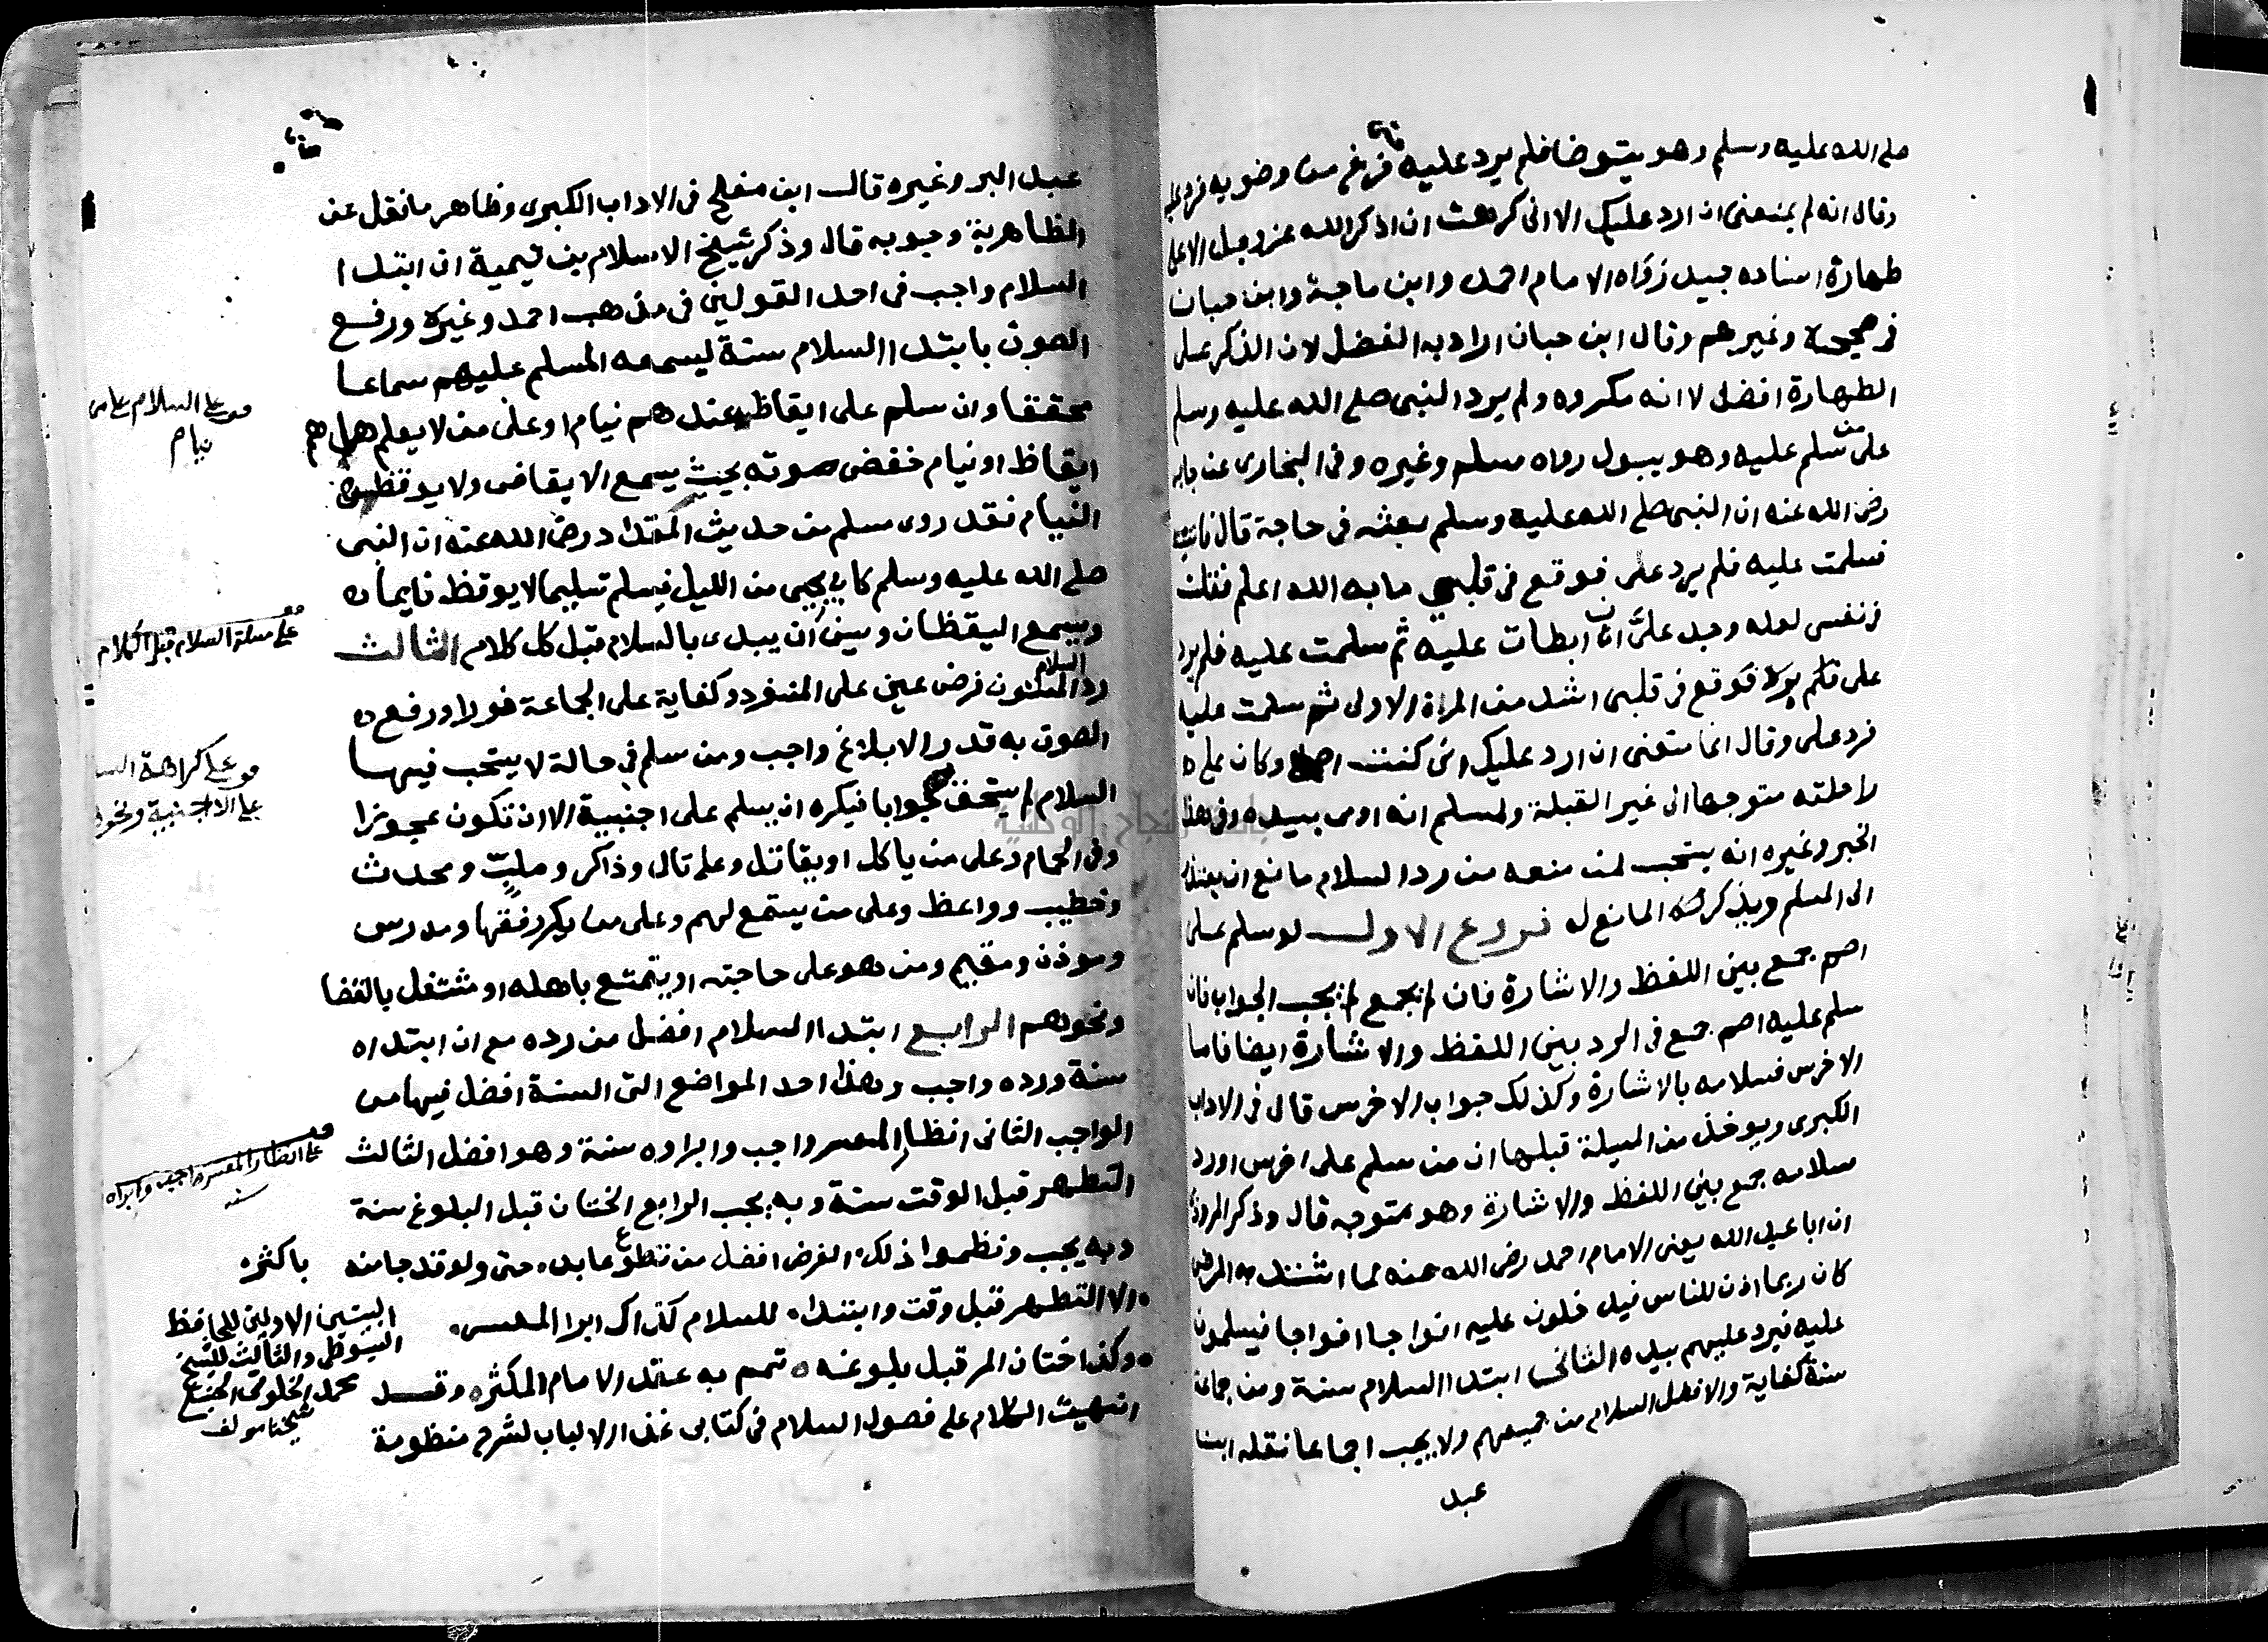 صلى الله عليه وسلم وهو يتوضا فلم يرد عليه حتى فرغ من وضويه فرد عليه
وقال انه لم يمنعني ان ارد عليك الا اني كرهت ان اذكر الله عز وجل الا على
طهارة اسناده جيد رواه الامام احمد وابن ماجة وابن حبان
في صحيحه وغيرهم وقال ابن حبان اراد به الفضل لان الذكر على
الطهارة افضل لا انه مكروه ولم يرد النبي صلى الله عليه وسلم
على من سلم عليه وهو يبول رواه مسلم وغيره وفي البخاري عن جابر
رضي الله عنه ان النبي صلى الله عليه وسلم بعثه في حاجة قال فاتيته
فسلمت عليه فلم يرد على فوقع في قلبي ما به الله اعلم فقلت
في نفسي لعله وجد علىّ اني ابطات عليه ثم سلمت عليه فلم يرد
على فوقع في قلبي اشد من المرة الاولى ثم سلمت عليه
فرد على وقال انما منعني ان ارد عليك اني كنت اصلي وكان على
راحلته متوجها الى غير القبلة ولمسلم انه اومى بيده وفي هذا
الخبر وغيره انه يستحب لمن منعه من رد السلام مانع ان يعتذر
الى المسلم ويذكر المانع له فروع الاول لو سلم على
اصم جمع بين اللفظ والاشارة فان لم يجمع لم يجب الجواب فان
سلم عليه اصم جمع في الرد بين اللفظ والاشارة ايضا فاما
الاخرس فسلامه بالاشارة وكذلك جواب الاخرس قال في الاداب
الكبرى ويوخذ من المسئلة قبلها ان من سلم على اخرس او رد
سلامه جمع بين اللفظ والاشارة وهو متوجه قال وذكر المروذي
ان ابا عبد الله يعني الامام احمد رضي الله عنه لما اشتد به المرض
كان ربما اذن للناس فيدخلون عليه افواجا افواجا فيسلمون
عليه فيرد عليهم بيده الثاني ابتدا السلام سنة ومن جماعة
سنة كفاية والافضل السلام من جميعهم ولا يجب اجماعا نقله ابن
عبد
عبد البر وغيره قال ابن مفلح في الاداب الكبرى وظاهر ما نقل عن
الظاهرية وجوبه قال وذكر شيخ الاسلام بن تيمية ان ابتدا
السلام واجب في احد القولين في مذهب احمد وغيره ورفع
الصوت بابتدا السلام سنة ليسمعه المسلم عليهم سماعا
محققا وان سلم على ايقاظ عندهم نيام او على من لا يعلم هل هم
ايقاظ او نيام خفض صوته بحيث يسمع الايقاض ولا يوقظ
النيام فقد روى مسلم من حديث المقداد رضي الله عنه ان النبي
صلى الله عليه وسلم كان يجيى من الليل فيسلم تسليما لا يوقظ نايما
ويسمع اليقظان وسن ان يبدى بالسلام قبل كل كلام الثالث
رد السلام المسنون فرض عين على المنفرد وكفاية على الجماعة فورا ورفع
الصوت به قدر الابلاغ واجب ومن سلم في حالة لا يستحب فيها
السلام لم يستحق جوابا فيكره ان يسلم على اجنبية الا ان تكون عجوزا
وفي الحمام وعلى من ياكل او يقاتل وعلى تال وذاكر وملبٍّ ومحدث
وخطيب وواعظ وعلى من يستمع لهم وعلى من يكرر فقها ومدرس
وموذن ومقيم ومن هو على حاجته او يتمتع باهله او مشتغل بالقضا
ونحوهم الرابع ابتدا السلام افضل من رده مع ان ابتداه
سنة ورده واجب وهذا احد المواضع التي السنة افضل فيها من
الواجب الثاني انظار المعسر واجب وابراوه سنة وهو افضل الثالث
التطهر قبل الوقت سنة وبه يجب الرابع الختان قبل البلوغ سنة
وبه يجب ونظموا ذلك الفرض افضل من تطوع عابد حتى ولو قد جا منه باكثره
الا التطهر قبل وقت وابتدا للسلام كذاك ابرا المعسر
وكذا ختان المر قبل بلوغه تمم به عقد الامام المكثره وقد
انهيت الكلام على فصول السلام في كتابي غذى الالباب لشرح منظومة
على السلام على من
نيام
على مسئلة السلام قبل الكلام
على كراهة السلا
على الاجنبية ونحوها
على انظار المعسر واجب وابراه
سنه
البيتين الاولين للحافظ
السيوطي والثالث للشيخ
محمد الخلوتي
شيخنا مولف